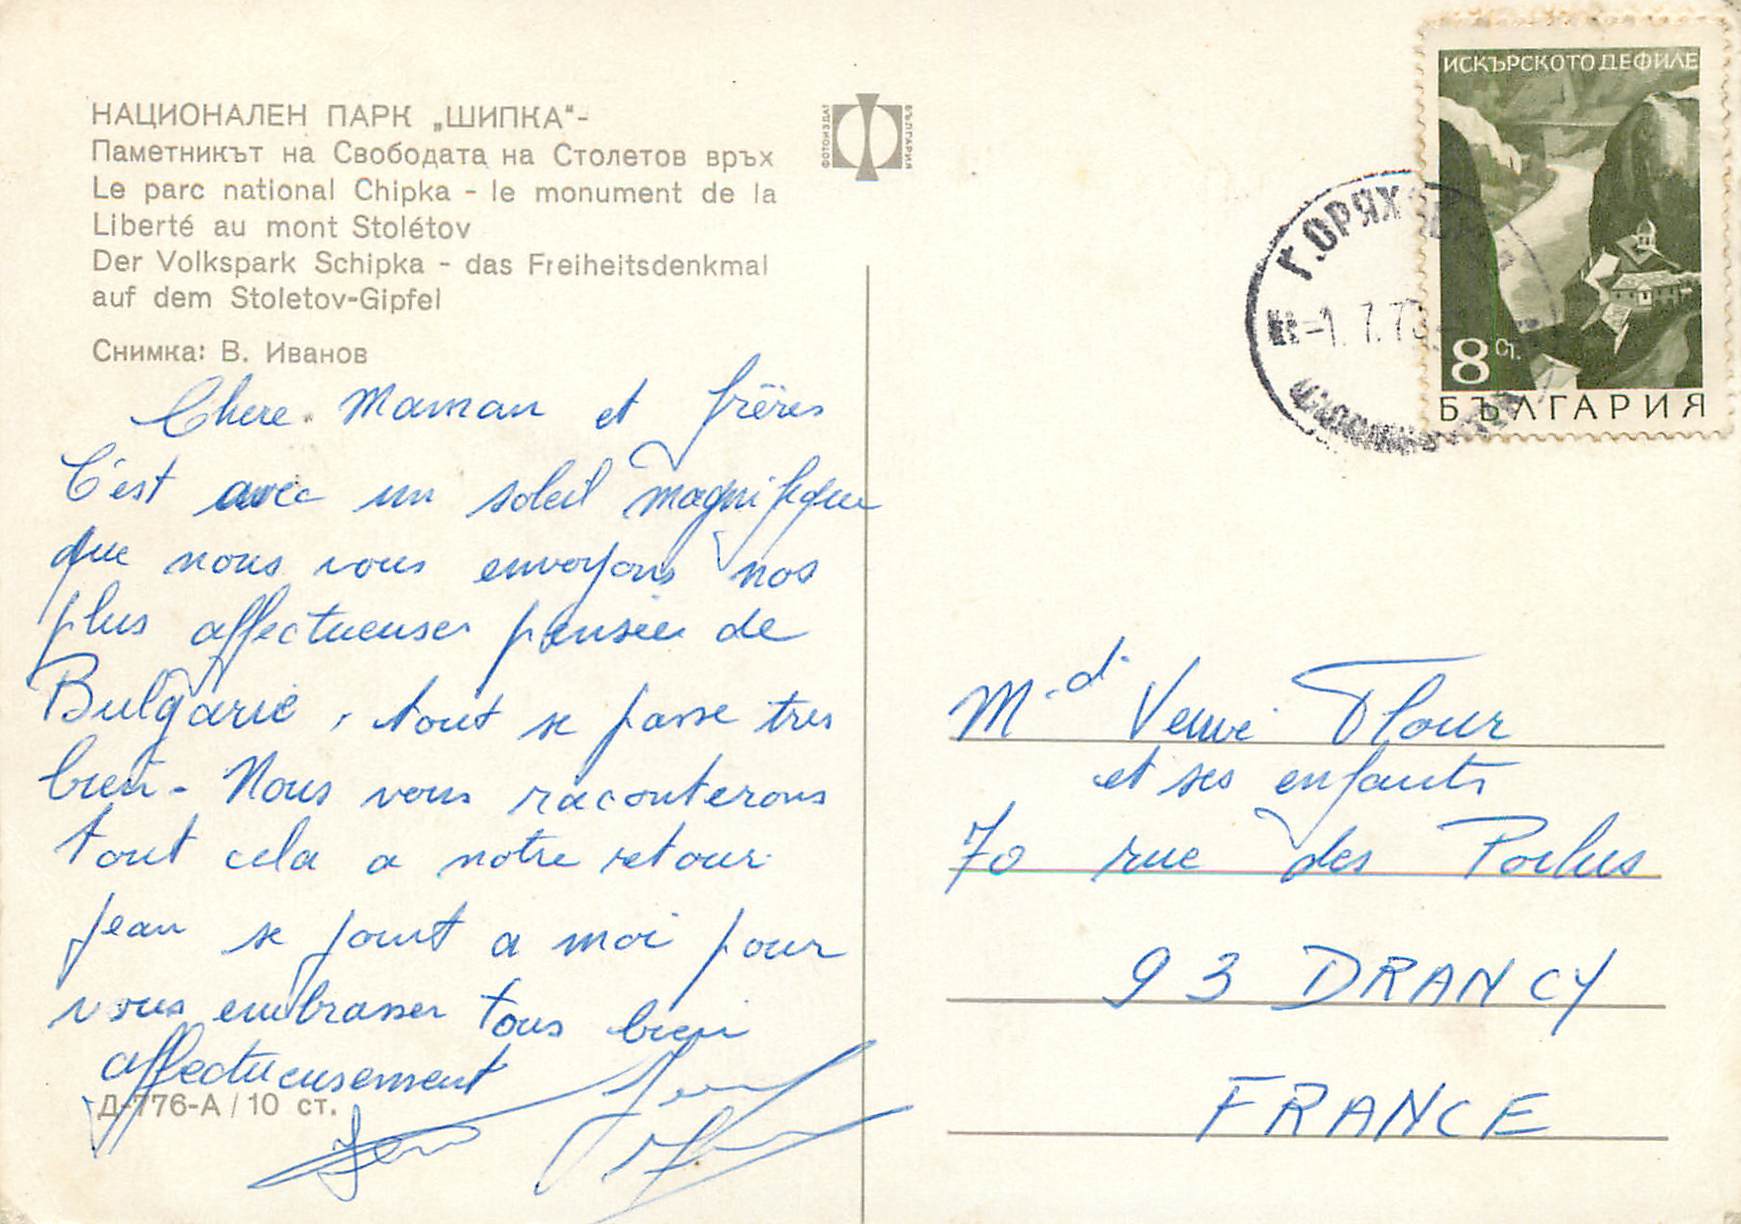 НАЦИОНАЛЕН ПАРК „ШИПКА“-
Паметникът на Свободата на Столетов връх
Le parc national Chipka - le monument de la
Liberté au mont Stolétov
Der Volkspark Schipka - das Freiheitsdenkmal
auf dem Stoletov-Gipfel
Снимка: В. Иванов
ФОТОИЗДАТ
БЪЛГАРИЯ
Chere Maman et frères
C'est avec un soleil magnifique
que nous vous envoyons nos
plus affectueuses pensées de
Bulgarie, tout se passe tres
bien. Nous vous raconterons
tout cela a notre retour
Jean se joint a moi pour
vous embrasser tous bien
affectueusement
Д-776-А / 10 ст.
Jean
ИСКЪРСКОТО ДЕФИЛЕ
8 Ст.
БЪЛГАРИЯ
Г. ОРЯХОВИЦА
-1. 7. 7
M.d Veuve Flour
et ses enfants
70 rue des Poilus
93 DRANCY
FRANCE